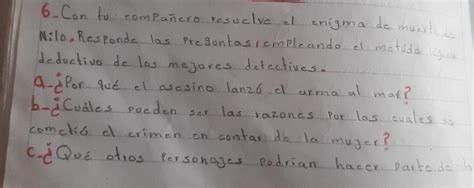 6-Con tu compañero resuelve el enigma de
Nilo. Responde las Preguntas, empleando el método
deductivo de los mejores detectives.
a-¿Por qué el asesino lanzó el arma al mar?
b-¿Cuáles pueden ser las razones Por las cuales se
cometió el crimen en contar de la mujer?
c-¿Qué otros Personajes podrían hacer parte de